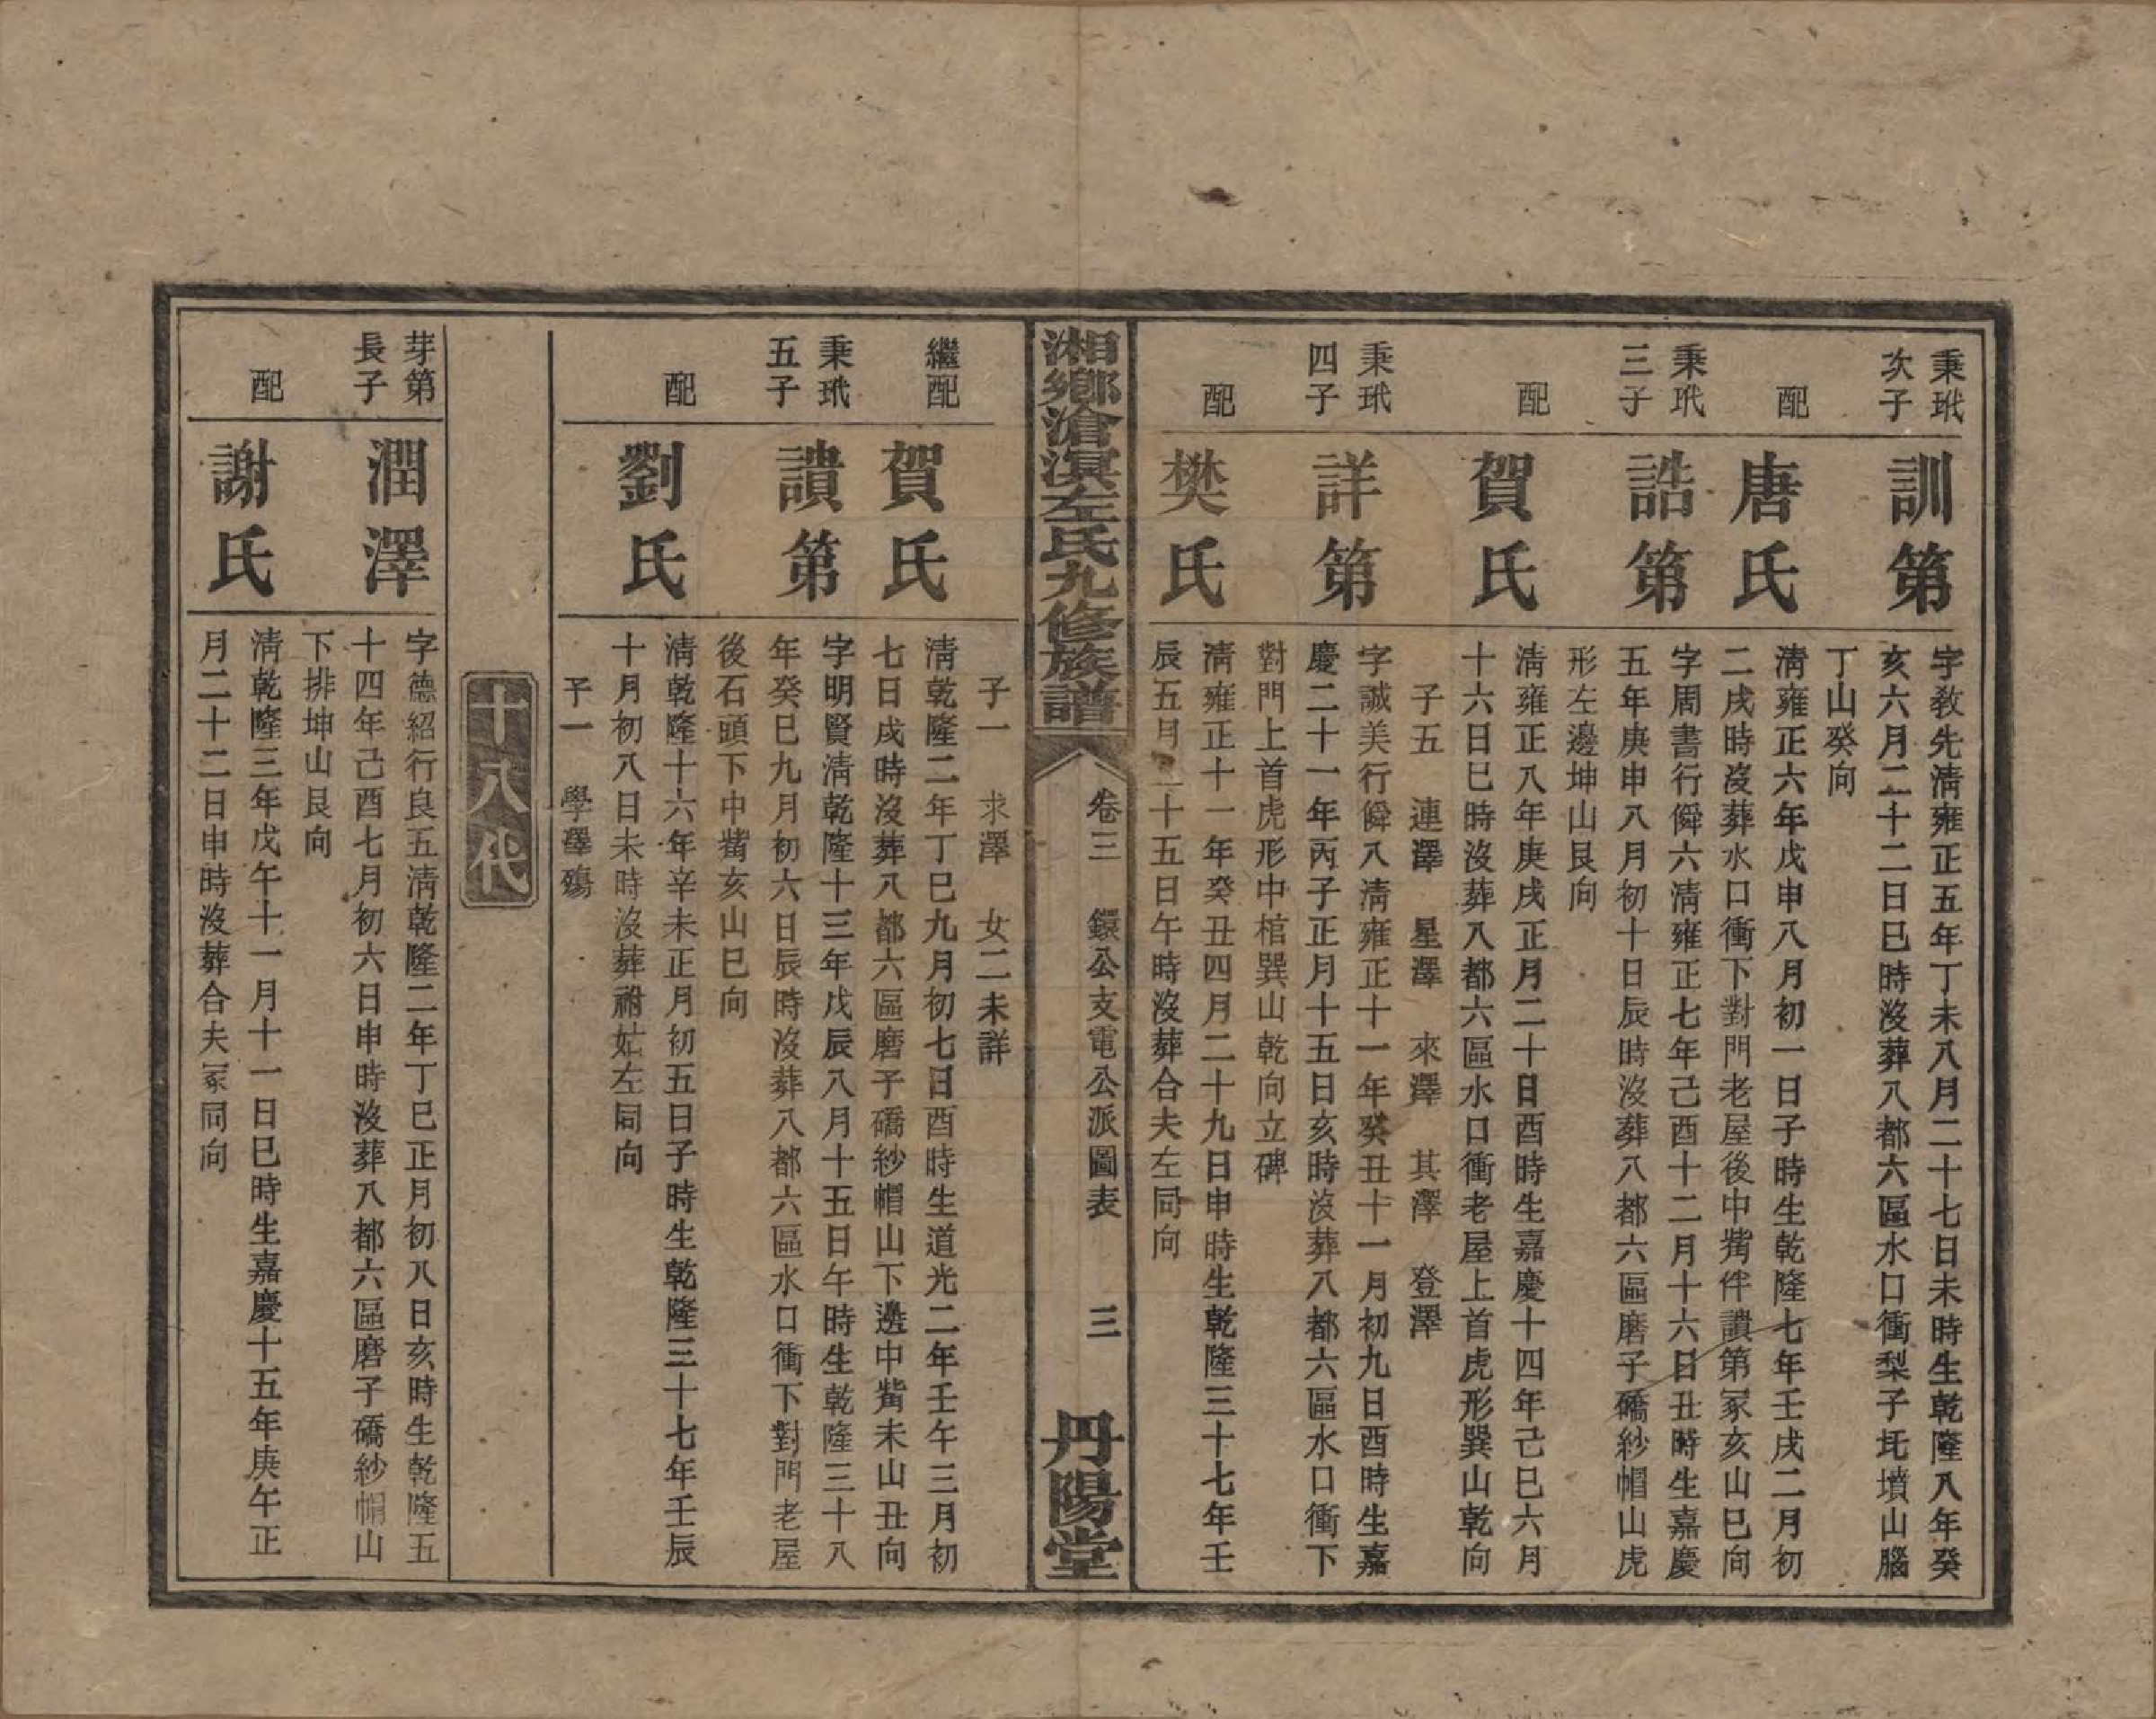 秉玳
次子
訓第
字敎先淸雍正五年丁未八月二十七日未時生乾隆八年癸
亥六月二十二日巳時沒葬八都六區水口衝梨子圫墳山腦
丁山癸向
配
唐氏
淸雍正六年戊申八月初一日子時生乾隆七年壬戌二月初
二戌時沒葬水口衝下對門老屋後中觜伴讃第冢亥山巳向
秉玳
三子
誥第
字周書行僢六淸雍正七年己酉十二月十六日丑時生嘉慶
五年庚申八月初十日辰時沒葬八都六區磨子礄紗帽山虎
形左邊坤山艮向
配
賀氏
淸雍正八年庚戌正月二十日酉時生嘉慶十四年己巳六月
十六日巳時沒葬八都六區水口衝老屋上首虎形巽山乾向
子五　連澤　星澤　來澤　其澤　登澤
秉玳
四子
詳第
字誠美行僢八淸雍正十一年癸丑十一月初九日酉時生嘉
慶二十一年丙子正月十五日亥時沒葬八都六區水口衝下
對門上首虎形中棺巽山乾向立碑
配
樊氏
淸雍正十一年癸丑四月二十九日申時生乾隆三十七年壬
辰五月二十五日午時沒葬合夫左同向
湘鄉滄溟左氏九修族譜
卷三　鐶公支電公派圖表　三
丹陽堂
子一　求澤　女二未詳
繼配
賀氏
淸乾隆二年丁巳九月初七日酉時生道光二年壬午三月初
七日戌時沒葬八都六區磨子礄紗帽山下邊中觜未山丑向
秉玳
五子
讃第
字明賢淸乾隆十三年戊辰八月十五日午時生乾隆三十八
年癸巳九月初六日辰時沒葬八都六區水口衝下對門老屋
後石頭下中觜亥山巳向
配
劉氏
淸乾隆十六年辛未正月初五日子時生乾隆三十七年壬辰
十月初八日未時沒葬祔姑左同向
子一　學澤殤
十八代
芽第
長子
潤澤
字德紹行良五淸乾隆二年丁巳正月初八日亥時生乾隆五
十四年己酉七月初六日申時沒葬八都六區磨子礄紗帽山
下排坤山艮向
配
謝氏
淸乾隆三年戊午十一月十一日巳時生嘉慶十五年庚午正
月二十二日申時沒葬合夫冢同向